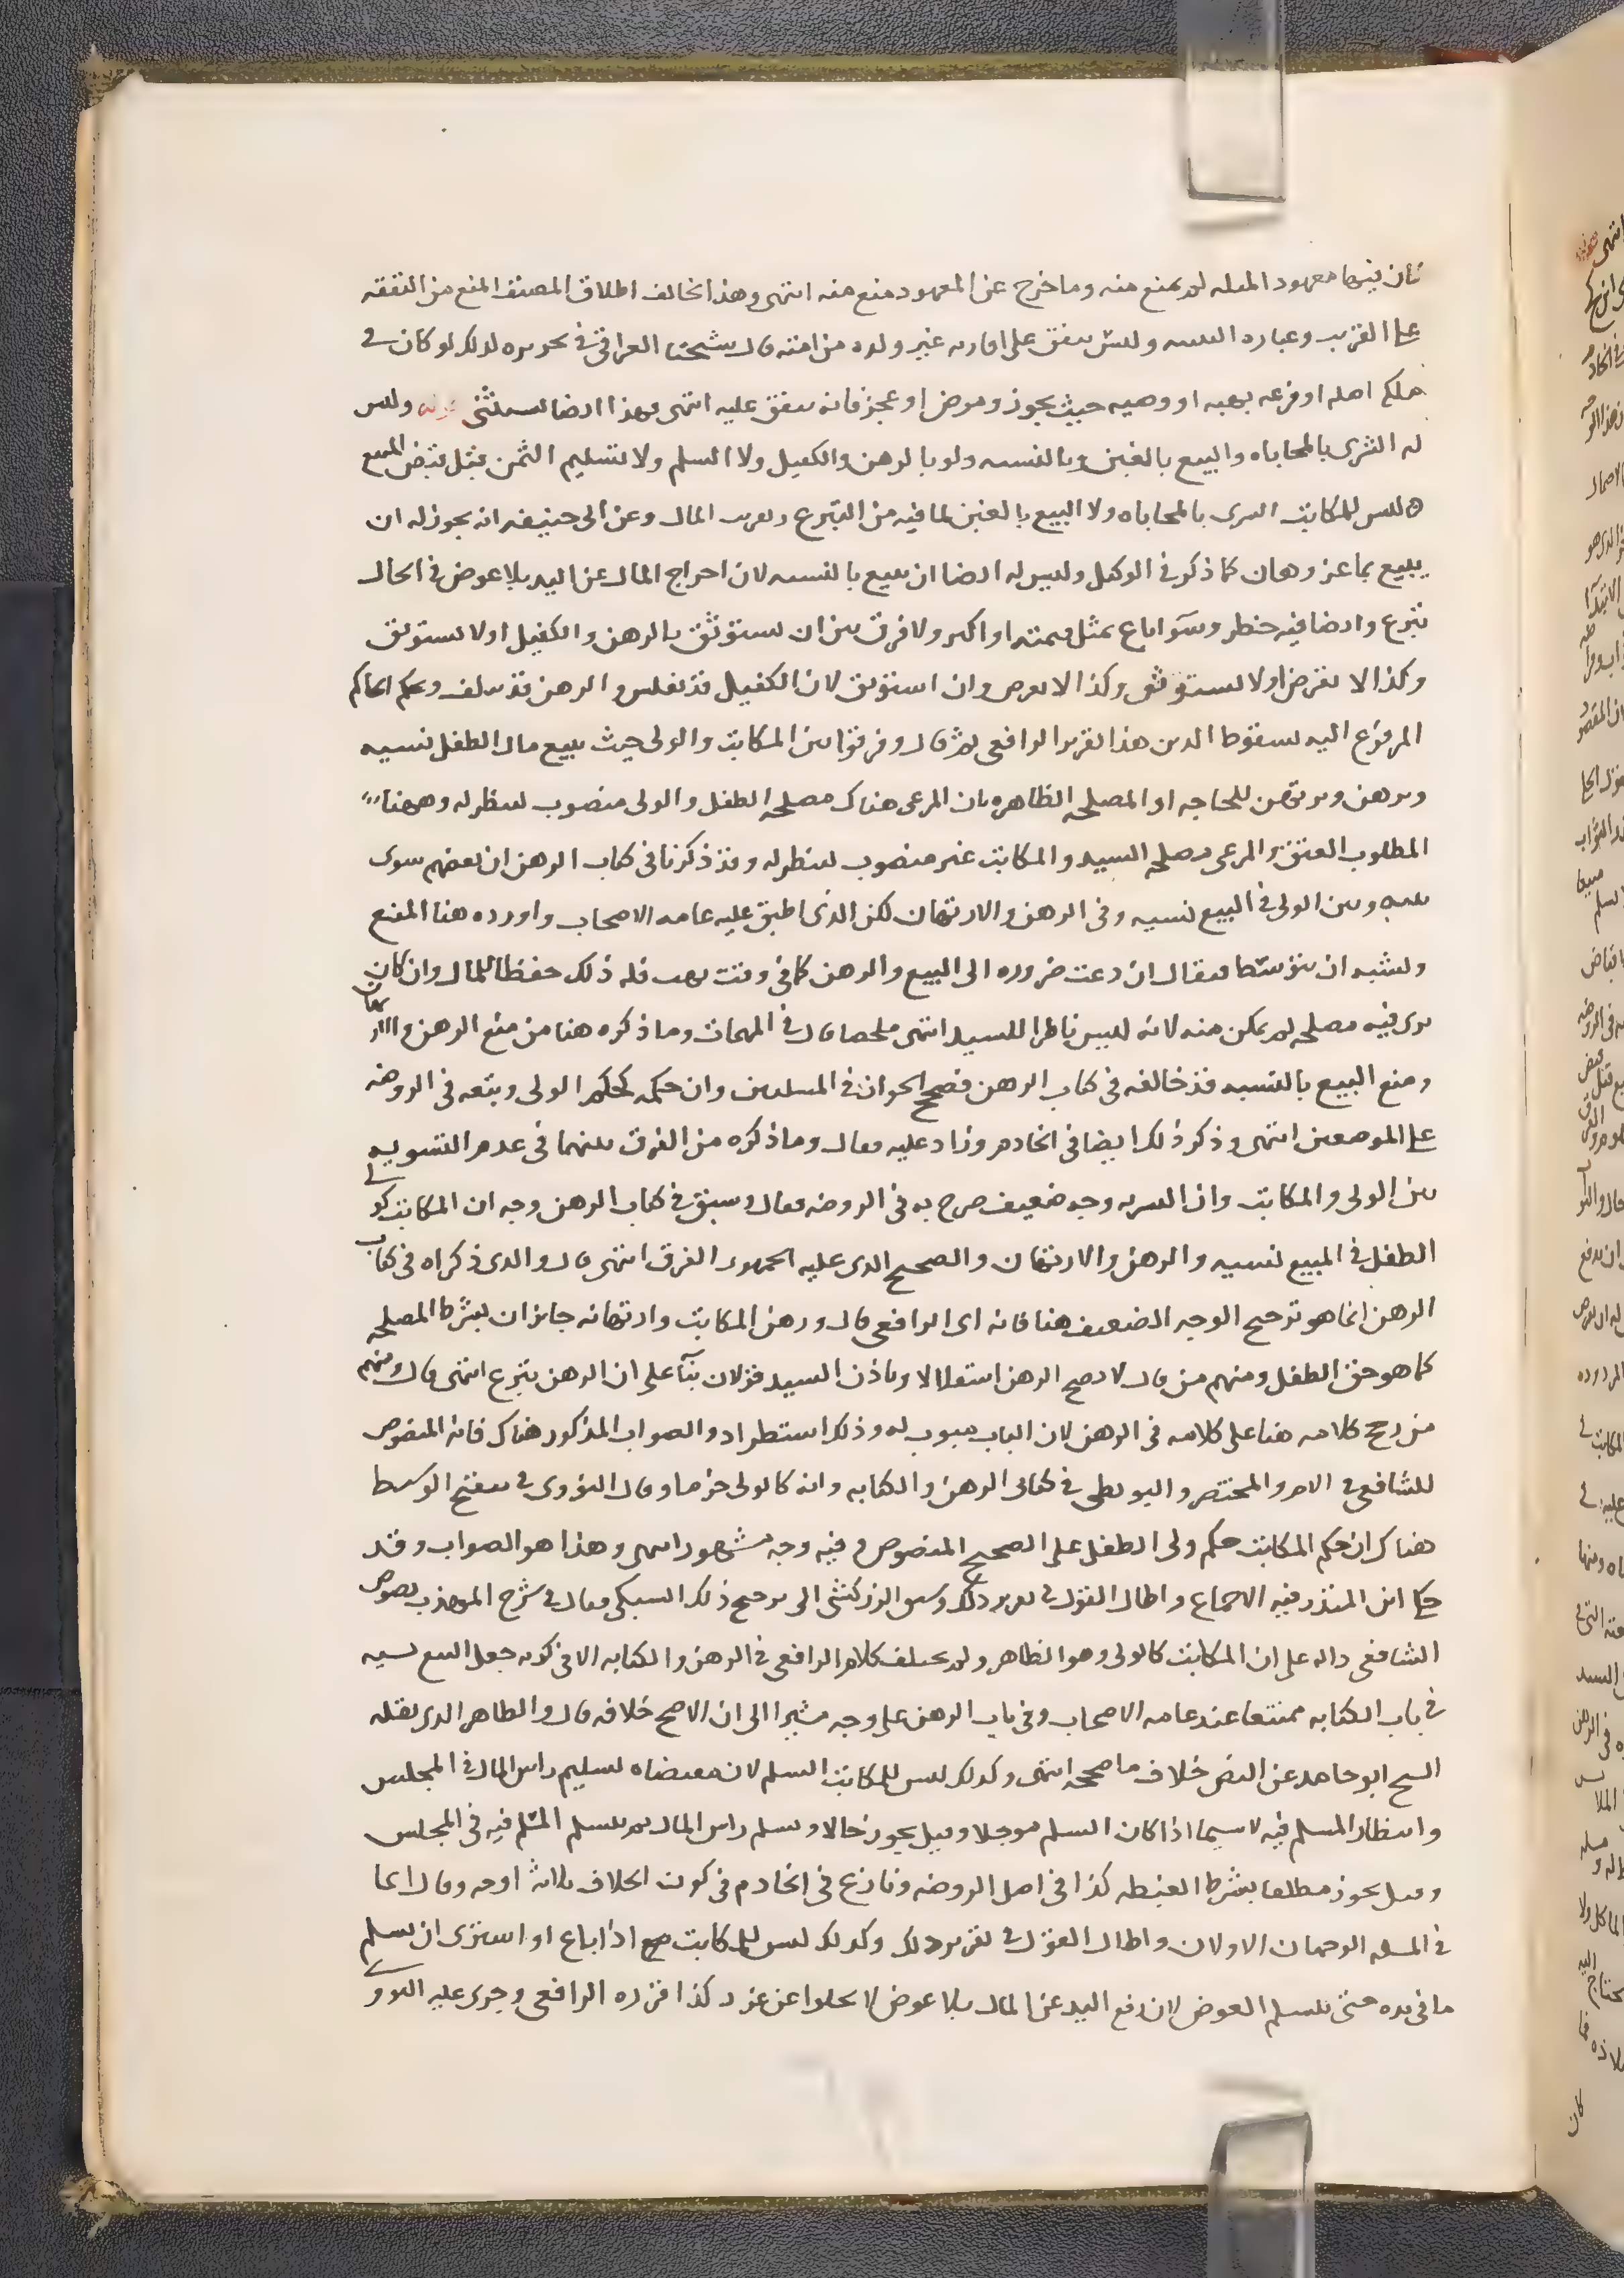 كان بينهما معهود المثله لم يمنع منه وما خرج عن المعهود منع منه انتهى وهذا يخالف اطلاق المصنف المنع من النفقه
على القريب وعباره التنبيه وليس ينفق على اقاربه غير ولده من امته قال شيخنا العراقي في تحريره لذلك لو كان في
ملكه اصله او فرعه بهبه او وصيه حيث يجوز ومرض او عجز فانه ينفق عليه انتهى فهذا ايضا يستثنى وليس
له الشرى بالمحاباه والبيع بالغبن وبالنسيه ولو بالرهن والكفيل ولا السلم ولا تسليم الثمن قبل قبض المبيع
ه ليس للمكاتب الشرى بالمحاباه ولا البيع بالغبن لما فيه من التبرع المال وعن ابي حنيفه انه يجوز له ان
يبيع بما عز وهان كما ذكر في الوكيل وليس له ايضا ان يبيع بالنسيه لان اخراج المال عن اليد بلا عوض في الحال
تبرع وايضا فيه خطر وسوآ باع بمثل قيمته او اكثر ولا فرق بين ان يستوثق بالرهن والكفيل او لا يستوثق
وكذا لا يقرض ولا يستوثق وكذا لا يقرض وان استوثق لان الكفيل قد يفلس والرهن قد يتلف ويحكم الحاكم
المرفوع اليه بسقوط الدين هذا تقرير الرافعي ثم قال وفرقوا بين المكاتب والولي حيث يبيع مال الطفل نسيه
ويرهن ويرتهن للحاجه او المصلحه الظاهره بان المرعى هناك مصلحه الطفل والولي منصوب لينظر له وههنا
المطلوب العتق والمرعى مصلحه السيد والمكاتب غير منصوب لينظر له وقد ذكرنا في كتاب الرهن ان بعضهم سوى
بينه وبين الولي في البيع نسيه وفي الرهن والارتهان لكن الذي اطبق عليه عامه الاصحاب واورده هنا المنع
ويشبه ان يتوسط فيقال ان دعت ضروره الى البيع والرهن كما في وقت نهب فله ذلك حفظا للمال وان كان
يرى فيه مصلحه لم يمكن منه لانه ليس ناظرا للسيد انتهى ملخصا قال في المهمات وما ذكره هنا من منع الرهن والارتهان
ومنع البيع بالنسيه قد خالفه في كتاب الرهن فصحح الجواز في المسلتين وان حكمه كحكم الولي وتبعه في الروضه
على الموضعين انتهى وذكر ذلك ايضا في الخادم وزاد عليه فقال وما ذكره من الفرق بينهما في عدم التسويه
بين الولي والمكاتب وان التسويه وجه ضعيف صرح به في الروضه فقال وسبق في كتاب الرهن وجه ان المكاتب كولي
الطفل في المبيع نسيه والرهن والارتهان والصحيح الذي عليه الجمهور الفرق انتهى قال والذي ذكراه في كتاب
الرهن انما هو ترجيح الوجه الضعيف هنا فانه اي الرافعي قال ورهن المكاتب وارتهانه جايزان بشرط المصلحه
كما هو حق الطفل ومنهم من قال لا يصح الرهن استقلالا وباذن السيد قولان بنآ على ان الرهن تبرع انتهى قال ومنهم
من رجح كلامه هنا على كلامه في الرهن لان الباب مبوب له وذلك استطراد والصواب المذكور هناك فانه المنصوص
للشافعي في الام والمختصر والبويطي في كتابي الرهن والكتابه وانه كالولي جزما وقال النووي في تنقيح الوسيط
هناك ان حكم المكاتب حكم ولي الطفل على الصحيح المنصوص وفيه وجه مشهور انتهى وهذا هو الصواب وقد
حكا ابن المنذر فيه الاجماع واطال القول في تقرير ذلك وسبق الزركشي الى ترجيح ذلك السبكي فقال في شرح المهذب نصوص
الشافعي داله على ان المكاتب كالولي وهو الظاهر ولم يختلف كلام الرافعي في الرهن والكتابه الا في كونه جعل البيع نسيه
في باب الكتابه ممتنعا عند عامه الاصحاب وفي باب الرهن على وجه مشيرا الى ان الاصح خلافه قال والظاهر الذي نقله
الشيخ ابو حامد عن النص خلاف ما صححه انتهى وكذلك ليس للمكاتب السلم لان مقتضاه تسليم راس المال في المجلس
وانتظار المسلم فيه لا سيما اذا كان السلم موجلا وقيل يجوز حالا ويسلم راس المال ثم يتسلم المسلم فيه في المجلس
وقيل يجوز مطلقا بشرط الغبطه كذا في اصل الروضه ونازع في الخادم في كون الخلاف ثلاثه اوجه وقال انما
في المسله الوجهان الاولان واطال القول في تقرير ذلك وكذلك ليس للمكاتب اذا باع او اشترى ان يسلم
ما في يده حتى يتسلم العوض لان رفع اليد عن المال بلا عوض لا يخلوا عن غرر كذا قرره الرافعي وجرى عليه النووي